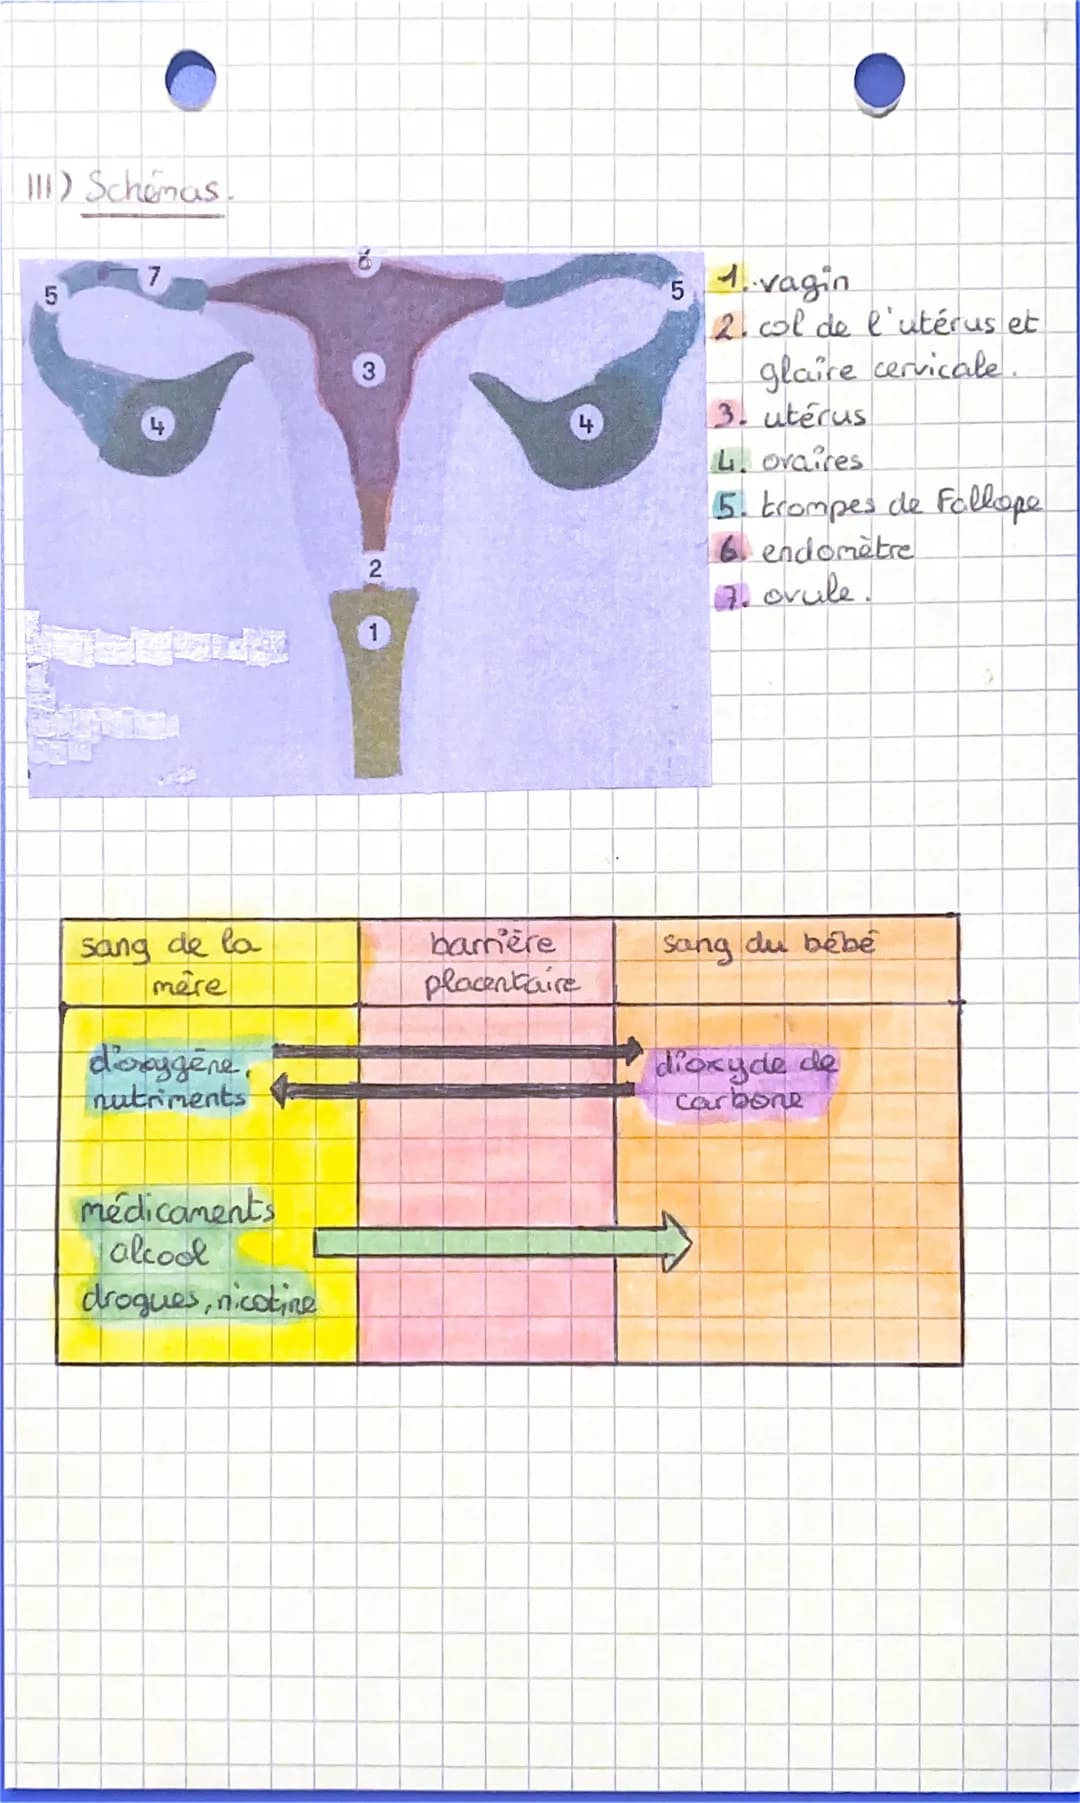 III) Schémas.
5
7
6
5
3
4
4
2
1
1. vagin
2. col de l'utérus et
glaire cervicale.
3. utérus
4. ovaires
5. trompes de Fallope
6. endomètre
7. ovule.
sang de la
mère
barrière
placentaire
sang du bébé
dioxygène,
nutriments
dioxyde de
carbone
médicaments
alcool
drogues, nicotine